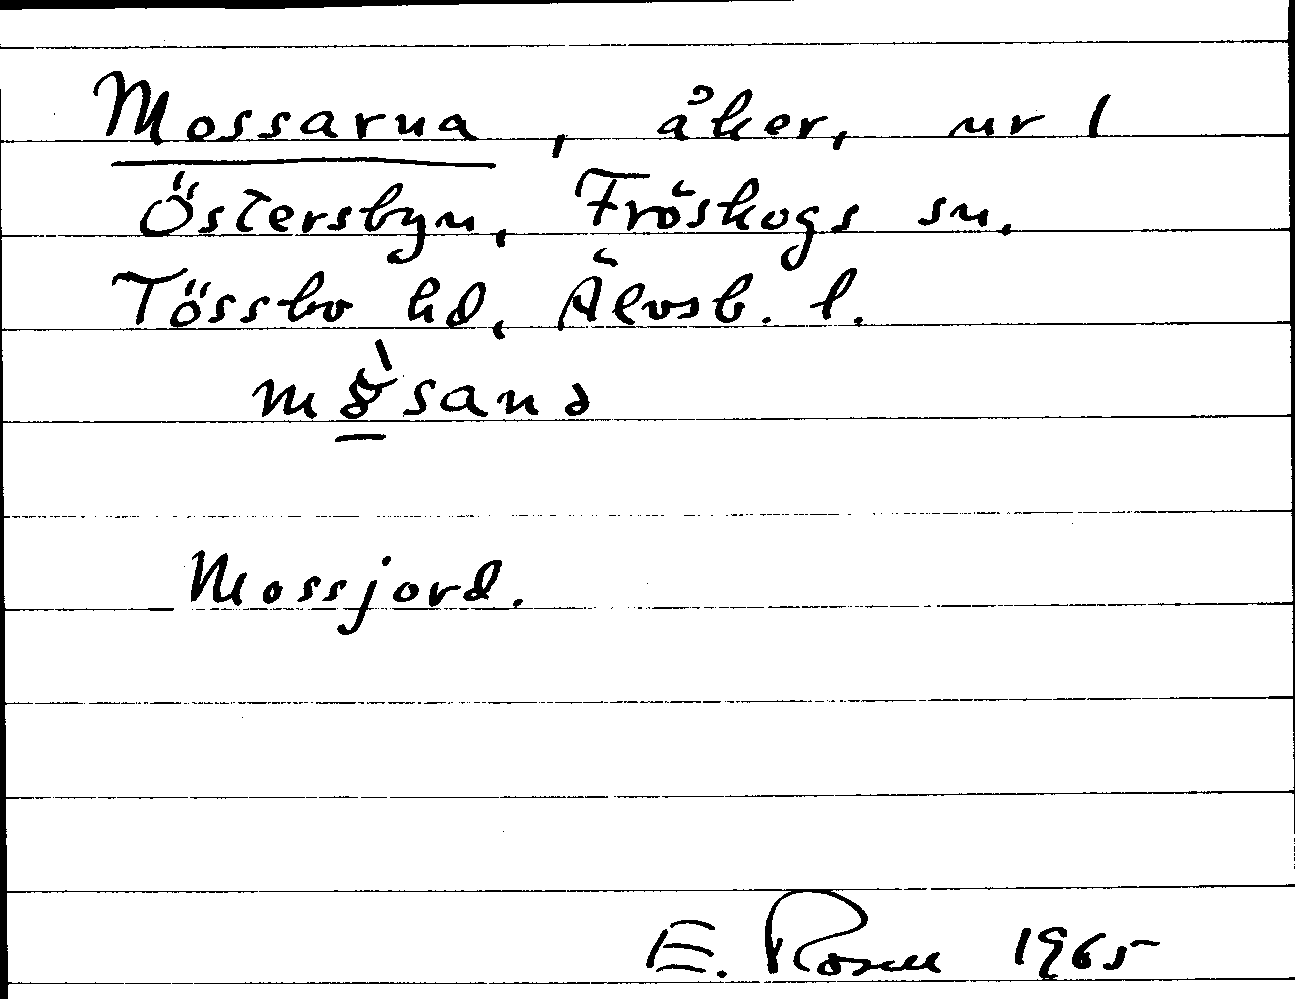 Mossarna, åker, nr 1
Östersbyn, Fröskogs sn.
Tössbo hd, Älvsb. l.
Mossjord.
E. Rosell 1965